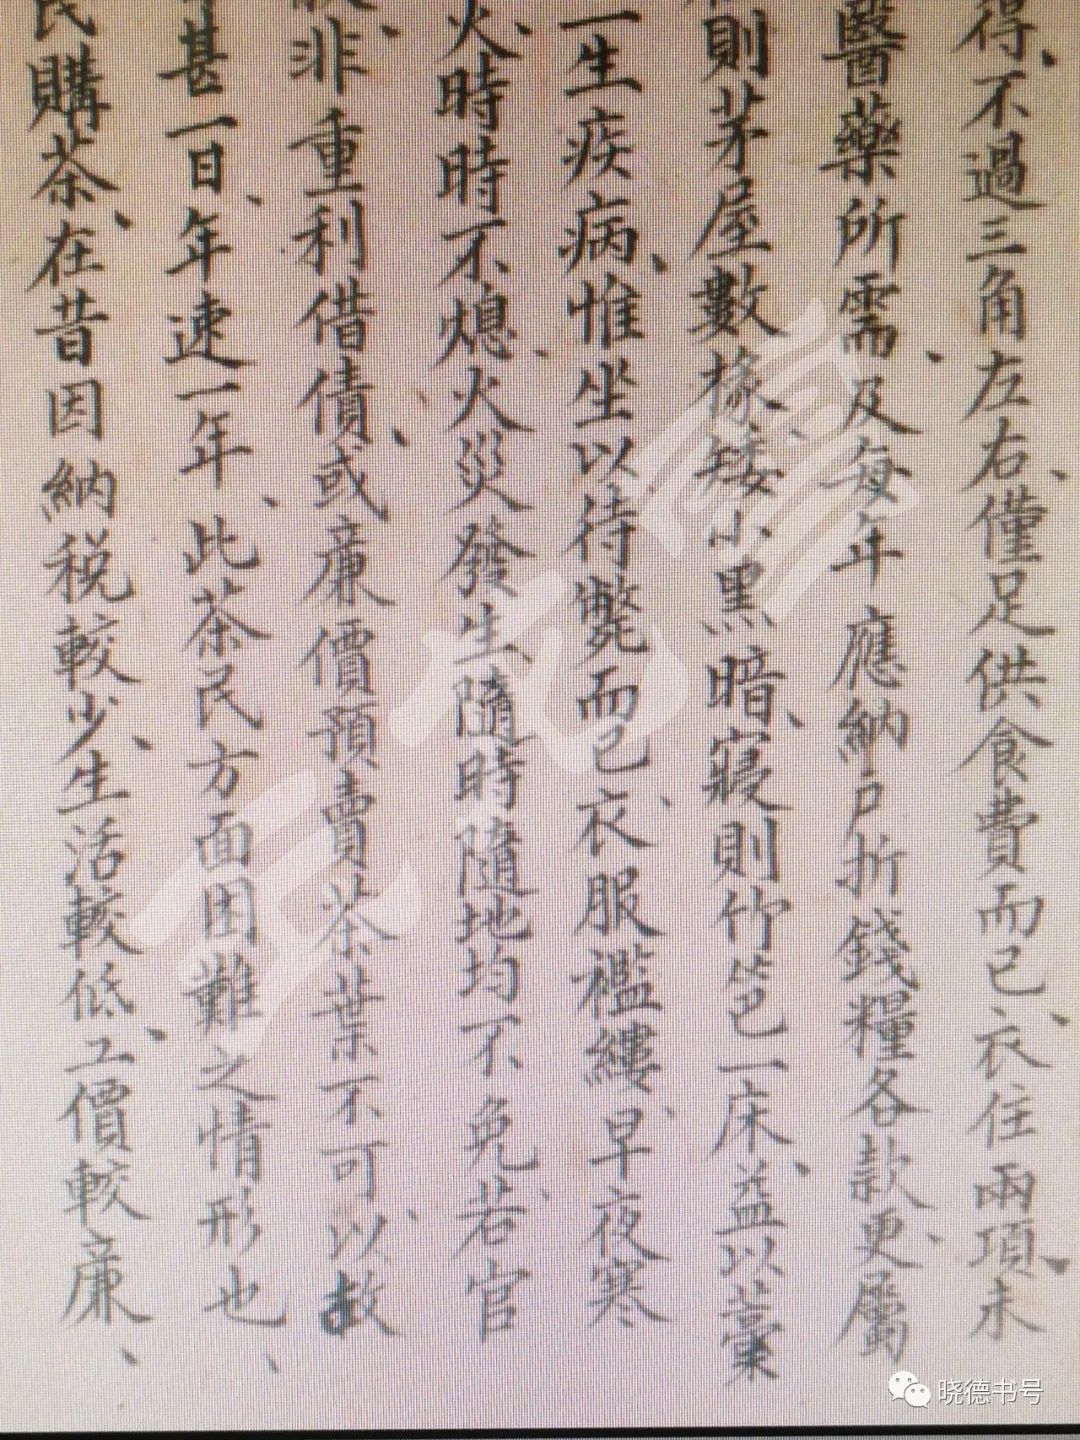 得、不過三角左右、僅足供食費而已、衣住兩項、未
醫藥所需、及每年應納戶折錢糧各款、更屬
則茅屋數椽、矮小黑暗、寢則竹笆一床、益以藁
一生疾病、惟坐以待斃而已、衣服襤縷、早夜寒
火、時時不熄、火災發生、隨時隨地均不免、若官
非重利借債、或廉價預賣茶葉不可、以故
甚一日、年速一年、此茶民方面困難之情形也、
民購茶、在昔因納税較少、生活較低、工價較廉、
晓德书号